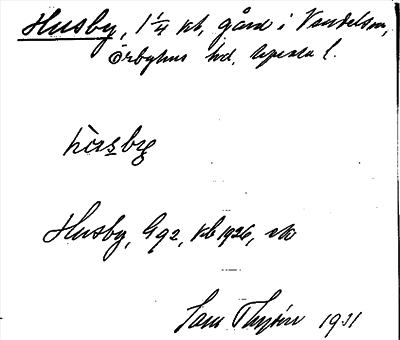 Husby, 1 1/4 kt, gård i Vendels sn,
Örbyhus hd, Uppsala l.
hùsby
Husby, Gg2, kb 1926, vk
Sam Thysén 1931